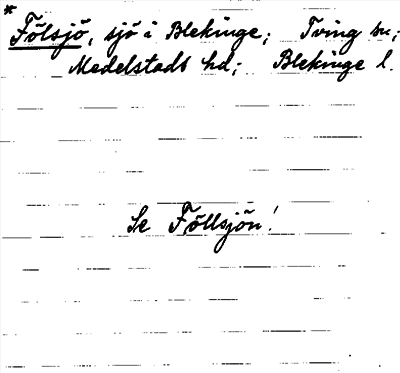 *
Fölsjö, sjö i Blekinge; Tving sn;
Medelstads hd; Blekinge l.
Se Föllsjön!